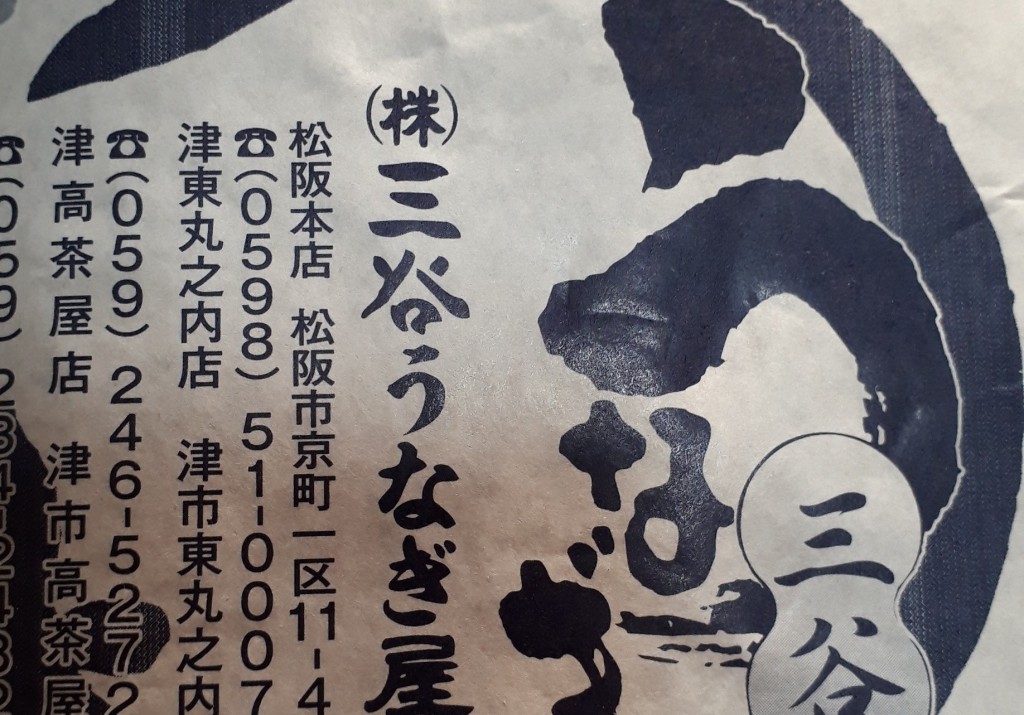 うなぎ
三谷
㈱三谷うなぎ屋
松阪本店 松阪市京町一区11-4
☎(0598)51-0007
津東丸之内店 津市東丸之内
☎(059)246-5272
津高茶屋店 津市高茶屋
☎(059)234-2482